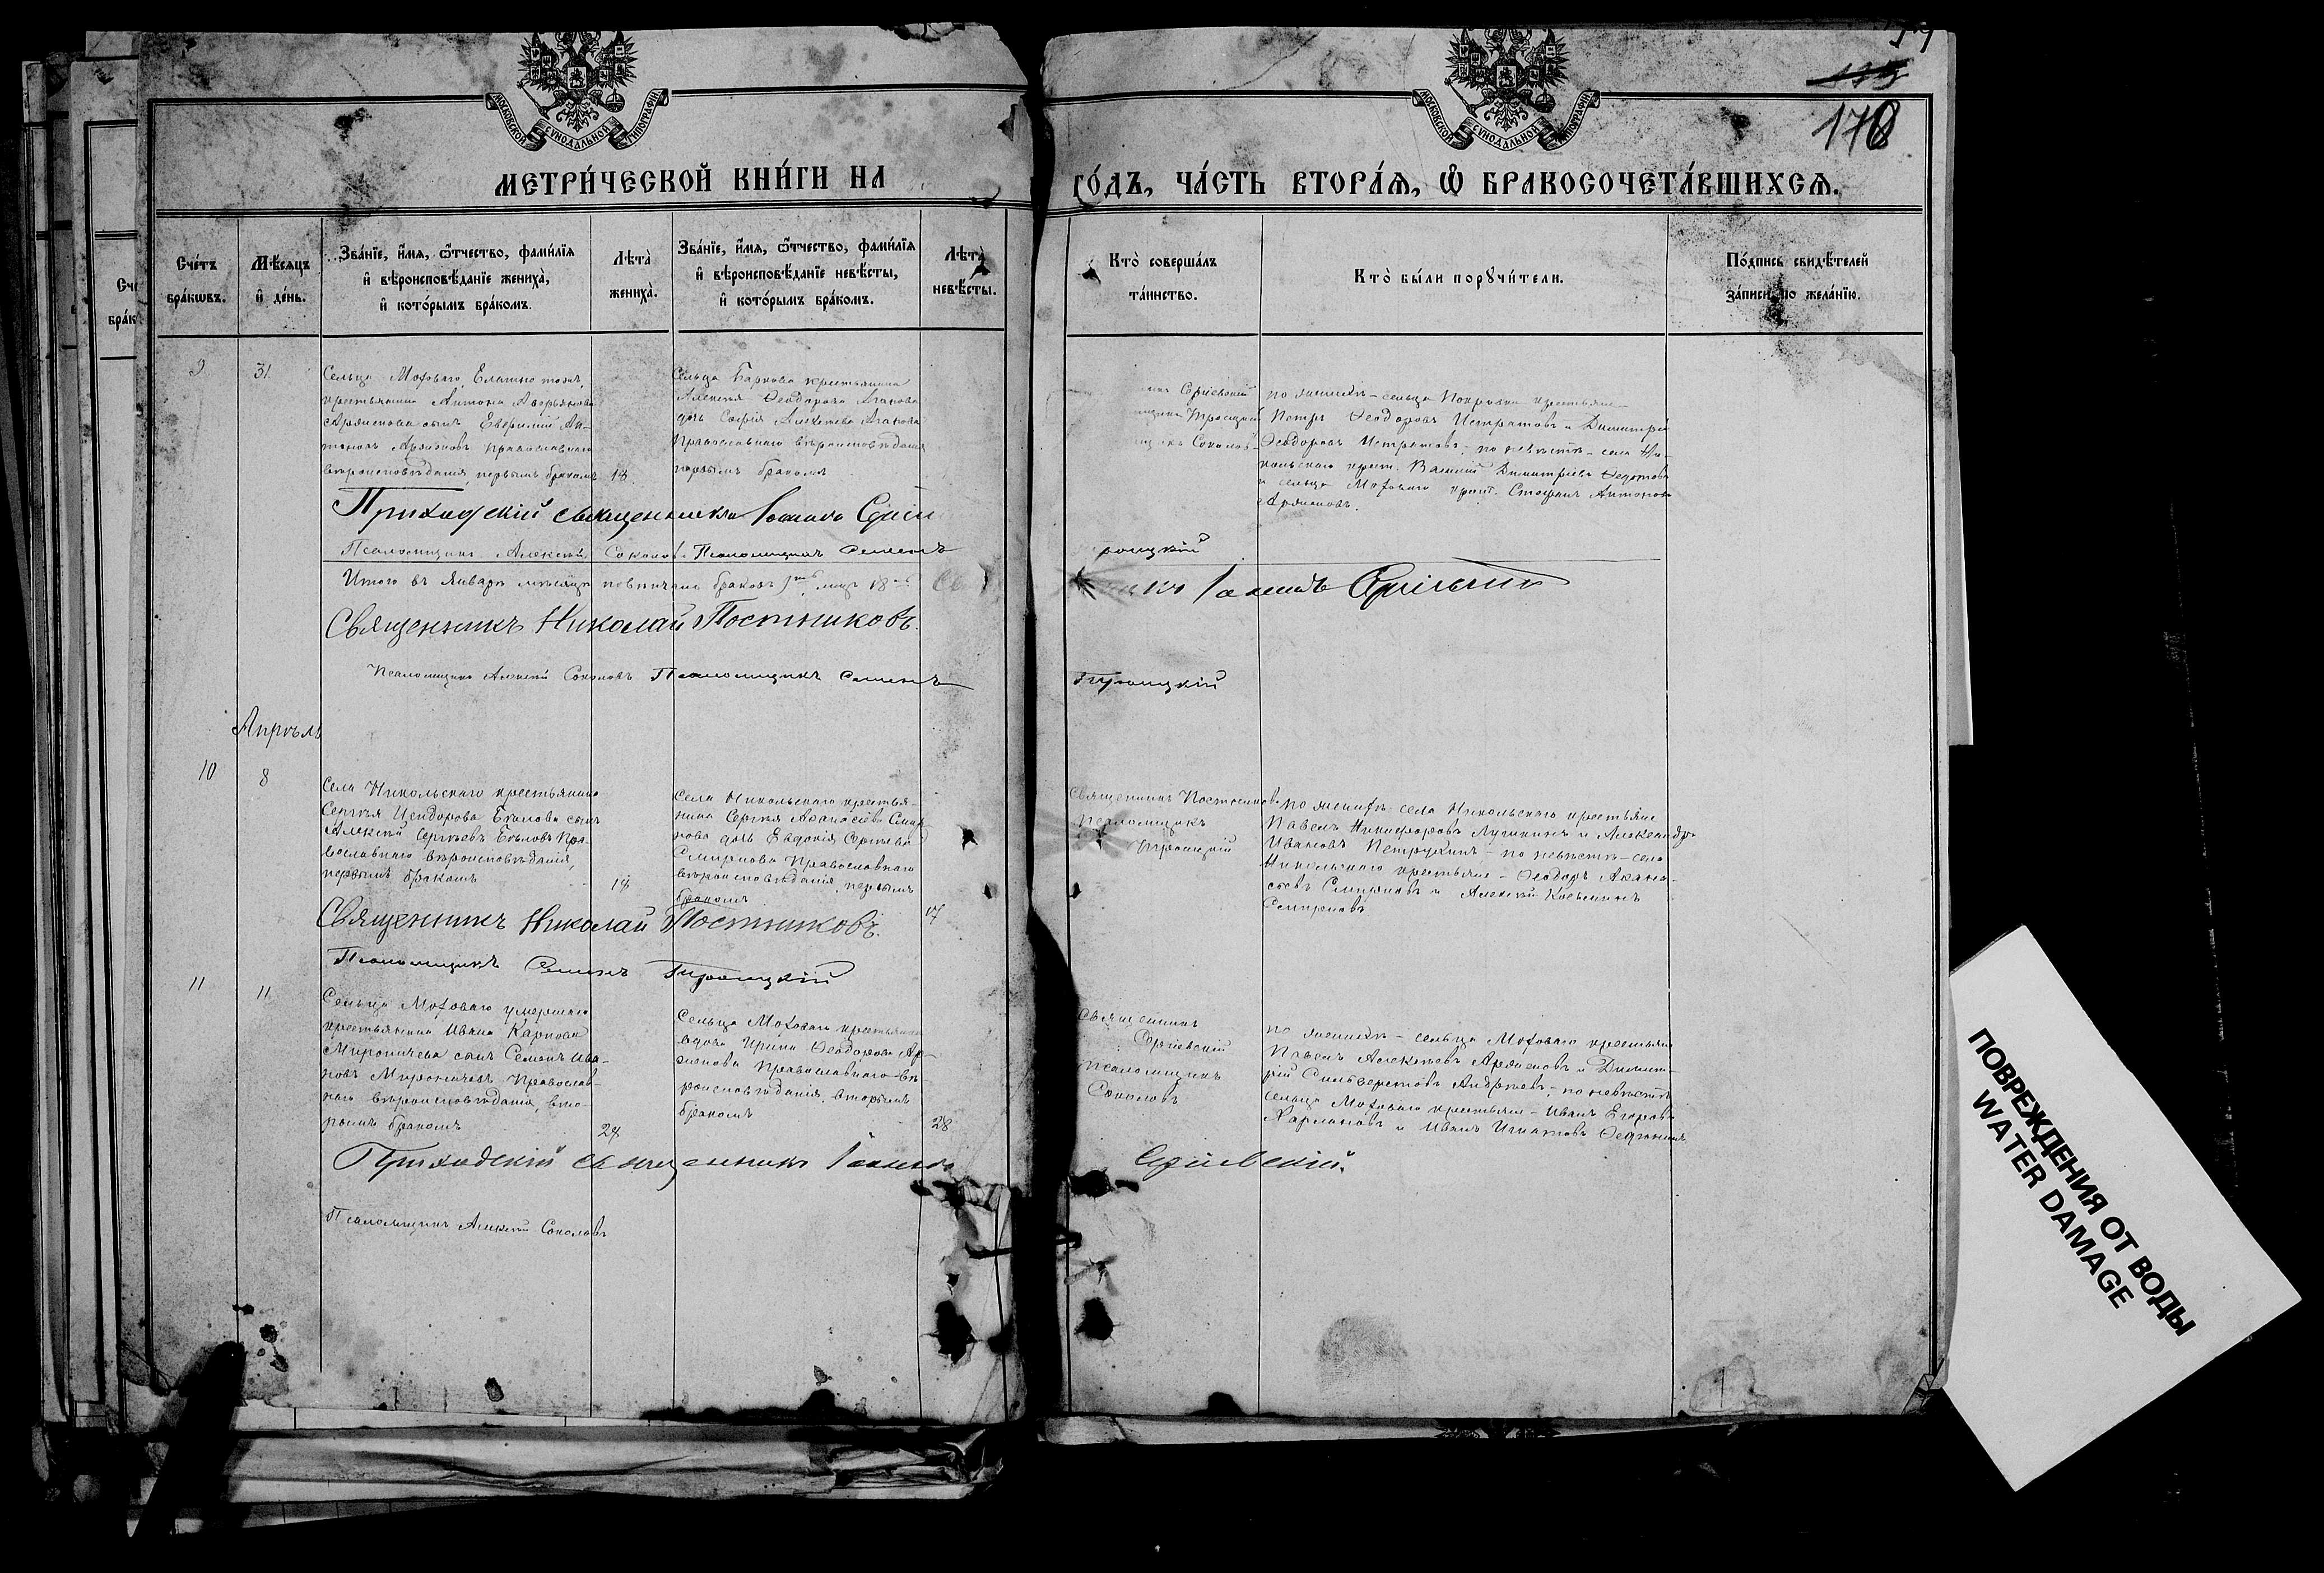 170
МОСКОВСКОЙ СѴНОДАЛЬНОЙ ТИПОГРАФІИ
МОСКОВСКОЙ СѴНОДАЛЬНОЙ ТИПОГРАФІИ
МЕТРИ́ЧЕСКОЙ КНИ́ГИ НА
ГО́ДЪ, ЧА́СТЬ ВТОРА́Я, Ѽ БРАКОСОЧЕТА́ВШИХСЯ.
Сче́тъ бра́кѡвъ.
Мѣ́сяцъ и҆ де́нь.
Зва́нїе, и҆́мя, ѻ҆́тчество, фами́лїя
и҆ вѣроисповѣ́данїе жениха̀,
и҆ кото́рымъ бра́комъ.
Лѣта̀ жениха̀.
Зва́нїе, и҆́мя, ѻ҆́тчество, фами́лїя
и҆ вѣроисповѣ́данїе невѣ́сты,
и҆ кото́рымъ бра́комъ.
Лѣта̀ невѣ́сты.
Кто̀ соверша́лъ та́инство.
Кто̀ бы́ли порꙋчи́тели.
По́дпись свидѣ́телей за́писи по жела́нїю.
9
31
Сельца Моховаго
крестьянина Антона Аверьянова
сынъ
православнаго
вѣроисповѣданія, первымъ бракомъ
18
Сельца крестьянина
Алексѣя Ѳеодорова Агапова
дочь Софія Алексѣева Агапова
Православнаго вѣроисповѣданія
первымъ бракомъ
Сергіевскій
Троицкій
Соколовъ
по женихѣ – сельца Покровки крестьяне
Петръ Ѳеодоровъ и Димитрій
Ѳеодоровъ по невѣстѣ – села Ни-
кольскаго крест. Василій Димитріевъ Ѳедотовъ
и сельца Моховаго крест. Стефанъ Антоновъ
Приходскій священникъ Іоаннъ
Псаломщикъ Алексій Соколовъ Псаломщикъ Семенъ
роицкій
Итого въ Январѣ мѣсяцѣ повѣнчано браковъ
Іоаннъ Сергіевскій
Священникъ Николай Постниковъ.
Псаломщикъ Алексій Соколовъ Псаломщикъ Семенъ
Троицкій
Апрѣль
10
8
Села Никольскаго крестьянина
Сергѣя Исидорова Бѣлова сынъ
Алексѣй Сергѣевъ Бѣловъ Пра-
вославнаго вѣроисповѣданія,
первымъ бракомъ
18
Села Никольскаго крестья-
нина Сергѣя Аѳанасіева Смир-
нова дочь Евдокія Сергѣева
Смирнова Православнаго
вѣроисповѣданія, первымъ
бракомъ
17
Священникъ Постниковъ
Псаломщикъ
Троицкій
по женихѣ села Никольскаго крестьяне
Павелъ Никифоровъ и Александръ
Ивановъ Петрухинъ – по невѣстѣ – села
Никольскаго крестьяне – Ѳеодоръ Аѳана-
сіевъ Смирновъ и Алексѣй Косьминъ
Смирновъ
Священникъ Николай Постниковъ.
Псаломщикъ Семенъ Троицкій
11
11
Сельца Моховаго умершаго
крестьянина Ивана Карпова
Миронычева сынъ Семенъ Ива-
новъ Миронычевъ Православ-
наго вѣроисповѣданія, вто-
рымъ бракомъ
Сельца Моховаго крестьянка
вдова Ирина Ѳеодорова Ар-
Православнаго вѣ-
роисповѣданія, вторымъ
бракомъ
28
Священникъ
Сергіевскій
Псаломщикъ
Соколовъ
по женихѣ – сельца Моховаго крестьяне
Павелъ Алексѣевъ и Димит-
рій Сильверстовъ Андреевъ, – по невѣстѣ
сельца Моховаго крестьяне – Иванъ Егоровъ
и Иванъ Игнатовъ
Приходскій священникъ Іоаннъ
Сергіевскій.
Псаломщикъ Алексій Соколовъ
ПОВРЕЖДЕНИЯ ОТ ВОДЫ
WATER DAMAGE